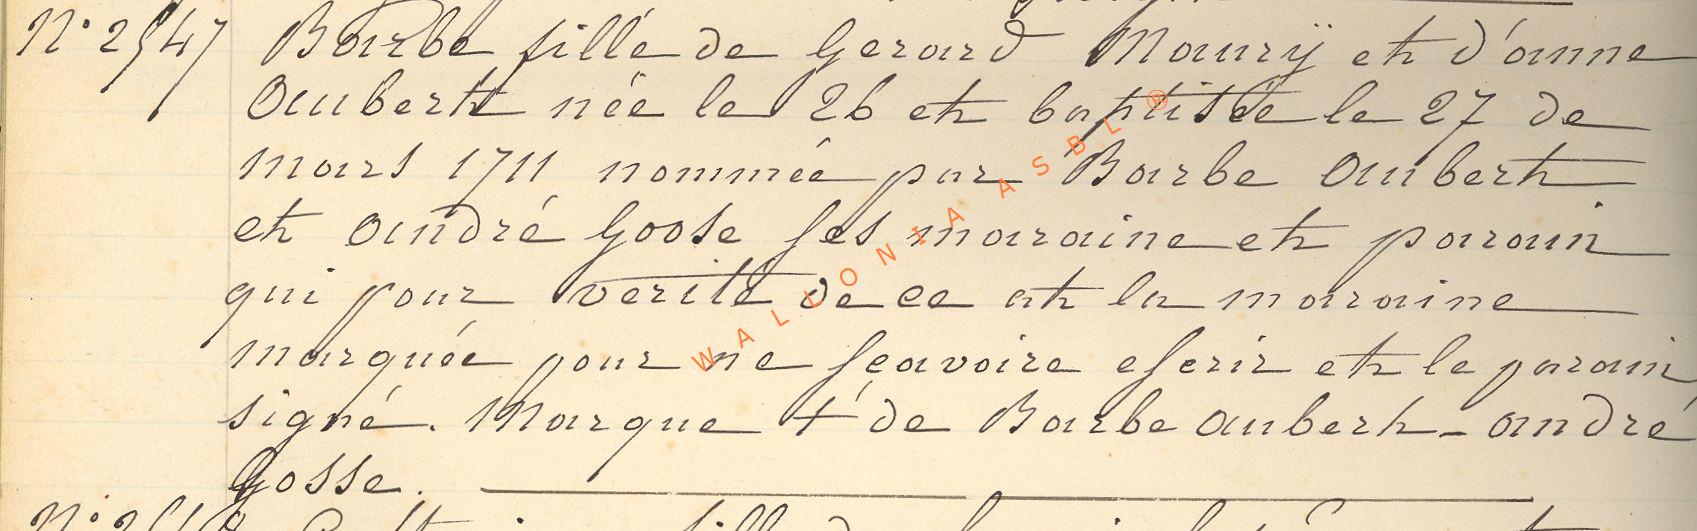 N° 2547 Barbe fille de Gerard Maurÿ et d'anne
Aubert née le 26 et baptisée le 27 de
mars 1711 nommée par Barbe Aubert
et André Goose ses maraine et parain
qui pour verité de ce at la maraine
marquée pour ne sçavoire escrir et le parain
signé. Marque + de Barbe aubert - André
Gosse.
WALLONIA ASBL ®